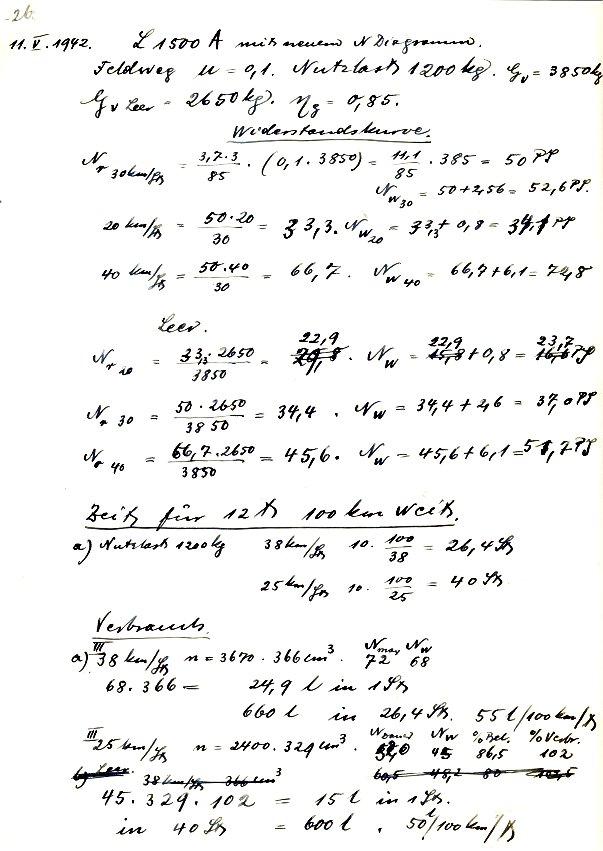 26.
11.V.1942. L 1500 A mit neuem N Diagramm.
Feldweg u = 0,1. Nutzlast 1200 kg. Gv = 3850 kg
Gv Leer = 2650 kg. ηg = 0,85.
Widerstandskurve.
Nr 30 km/St = 3,7·3/85 · (0,1 · 3850) = 11,1/85 · 385 = 50 PS
Nw30 = 50 + 2,56 = 52,6 PS.
20 km/St = 50·20/30 = 33,3. Nw20 = 33,3 + 0,8 = 34,1 PS
40 km/St = 50·40/30 = 66,7. Nw40 = 66,7 + 6,1 = 72,8
Leer.
Nr 20 = 33,3·2650/3850 = 22,9 . Nw = 22,9 + 0,8 = 23,7 PS
Nr 30 = 50·2650/3850 = 34,4 . Nw = 34,4 + 2,6 = 37,0 PS
Nr 40 = 66,7·2650/3850 = 45,6. Nw = 45,6 + 6,1 = 51,7 PS
Zeit für 12 t 100 km Weit.
a) Nutzlast 1200 kg 38 km/St 10 · 100/38 = 26,4 St
25 km/St 10 · 100/25 = 40 St
Verbrauch.
a) III 38 km/St n = 3670 . 366 cm³ . Nmax 72 Nw 68
68 . 366 = 24,9 l in 1 St
660 l in 26,4 St. 55 l/100 km/t
III 25 km/St n = 2400 . 329 cm³ . Nw 45 % Bel. 86,5 % Verbr. 102
38 km/St 366 cm³ 60,5 48,2 80
45 . 329 . 102 = 15 l in 1 St.
in 40 St = 600 l . 50 l/100 km/t